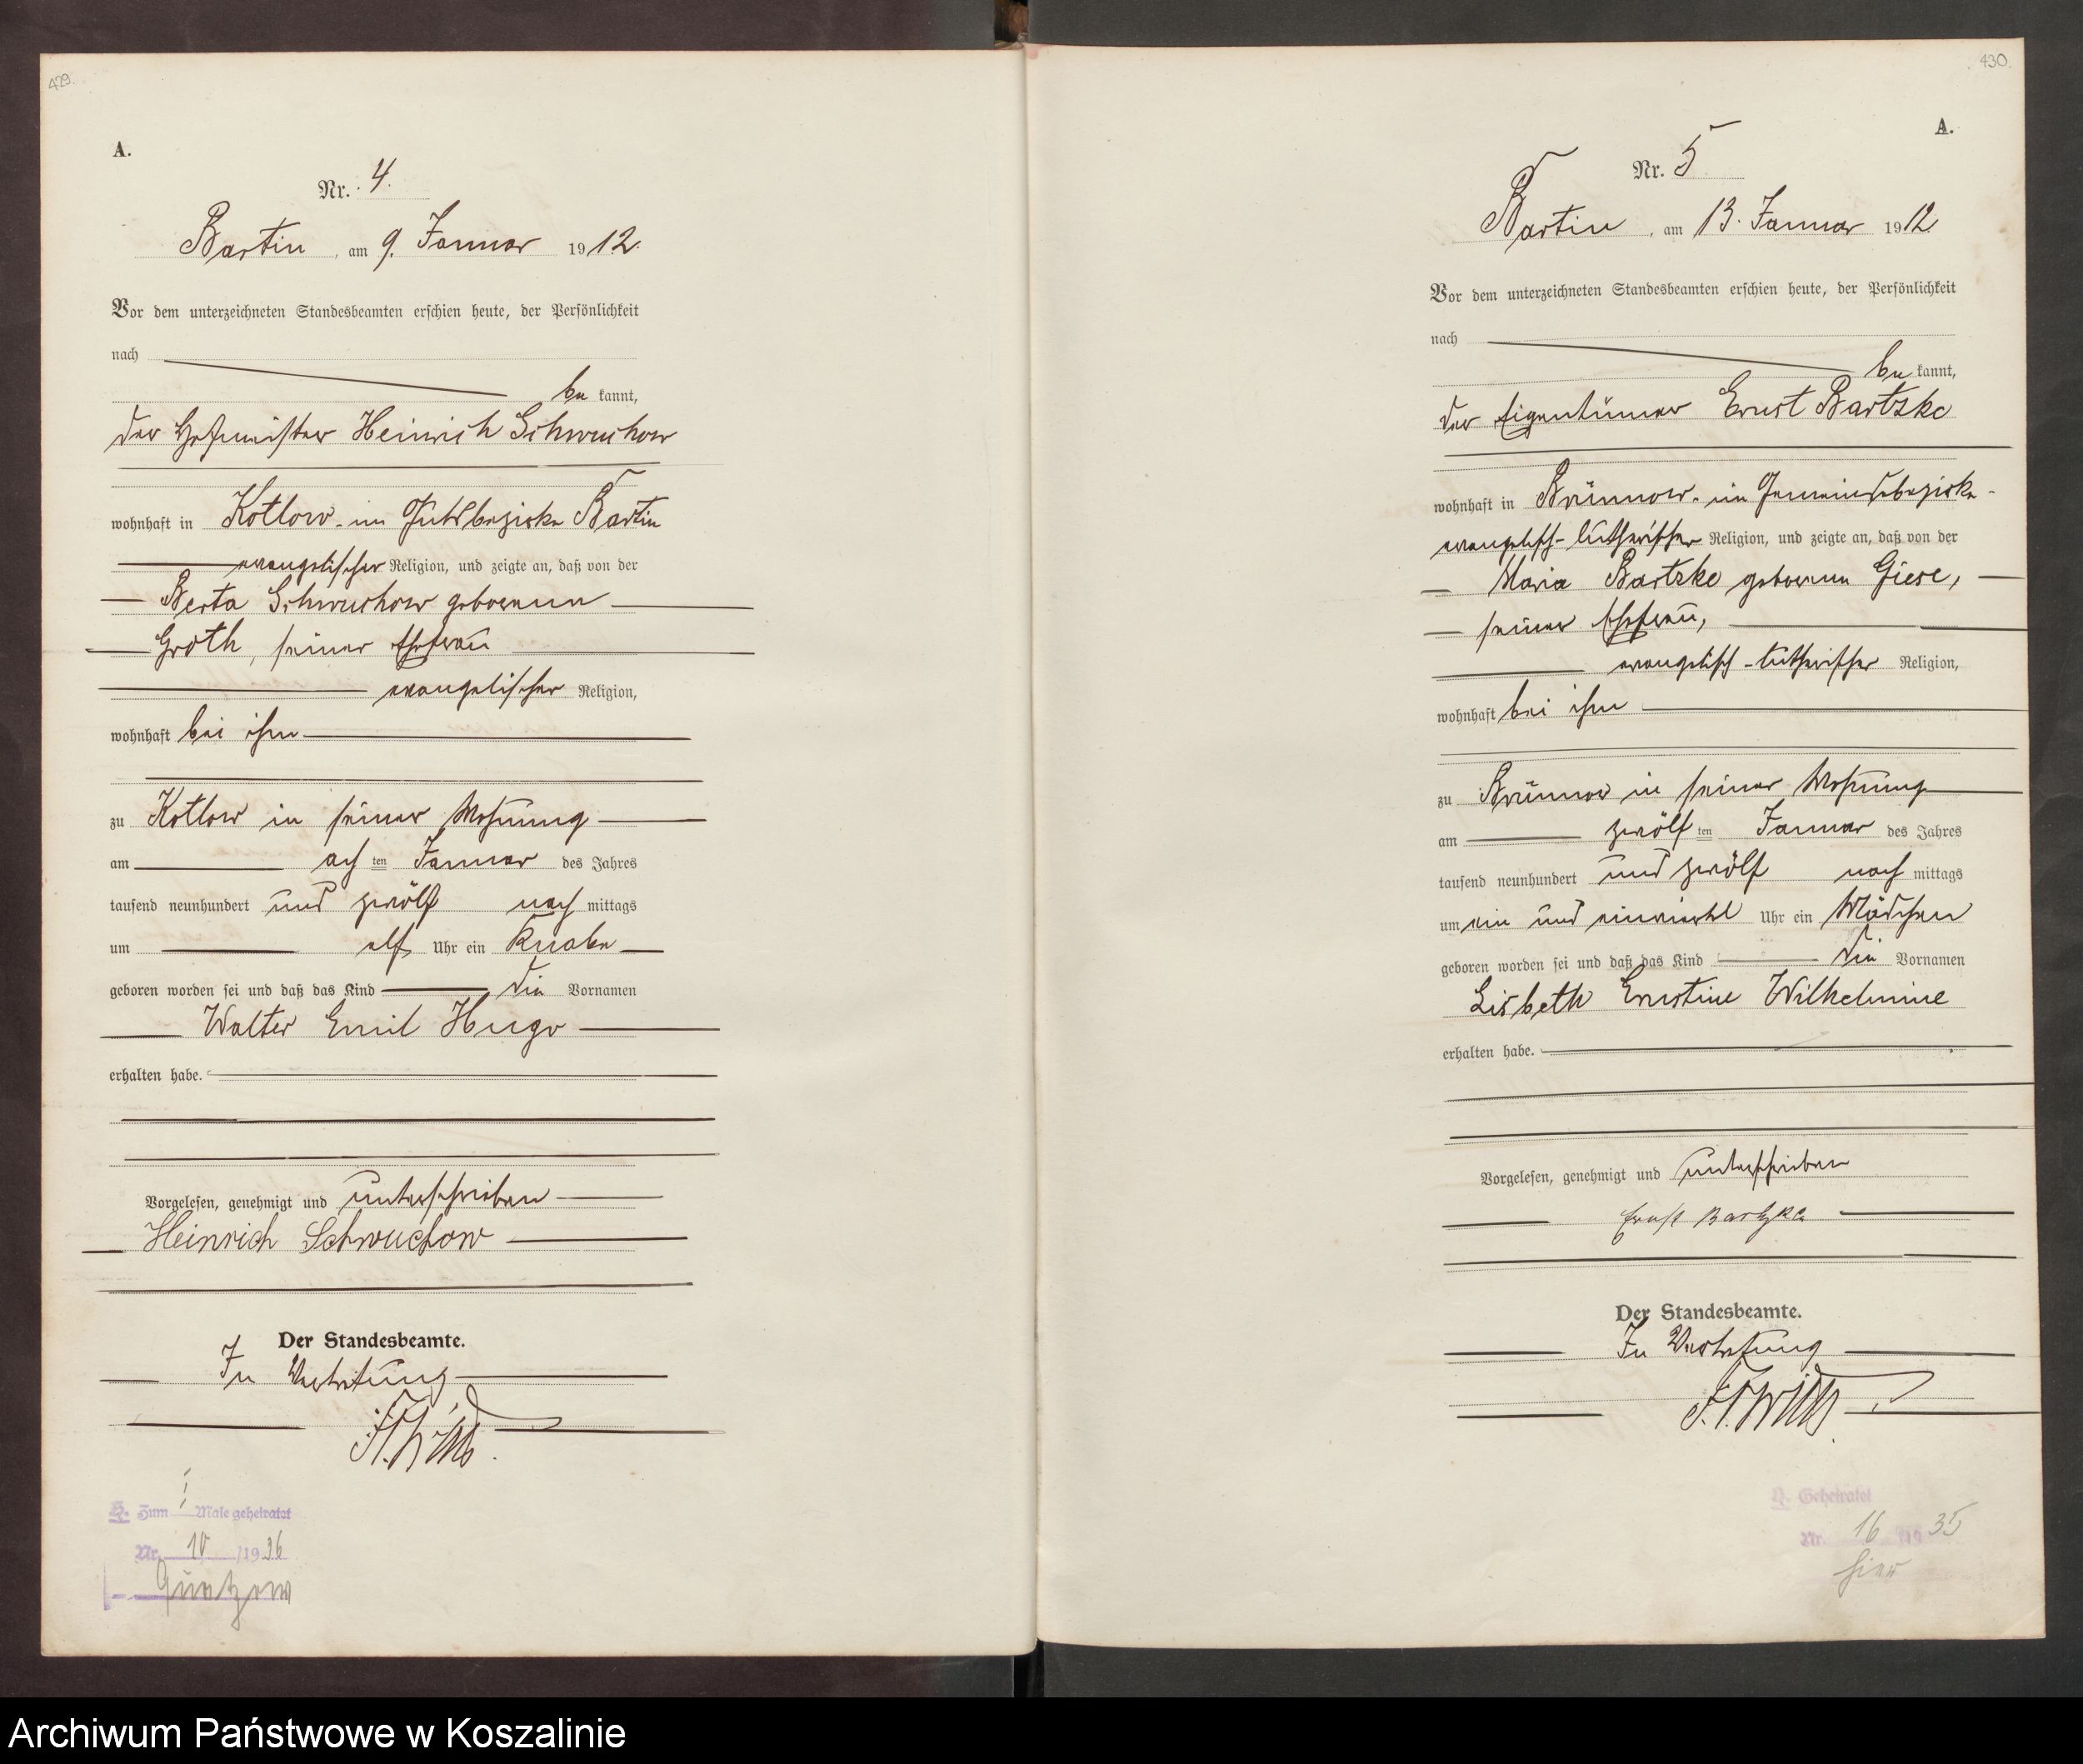 429.
A.
Nr. 4.
Bartin, am 9. Januar 1912.
Vor dem unterzeichneten Standesbeamten erschien heute, der Persönlichkeit
nach
be kannt,
der Hofmeister Heinrich Schwuchow
wohnhaft in Kotlow im Gutsbezirke Bartin
evangelischer Religion, und zeigte an, daß von der
Berta Schwuchow geborenen
Groth, seiner Ehefrau
evangelischer Religion,
wohnhaft bei ihm
zu Kotlow in seiner Wohnung
am ach ten Januar des Jahres
tausend neunhundert und zwölf nach mittags
um elf Uhr ein Knabe
geboren worden sei und daß das Kind die Vornamen
Walter Emil Hugo
erhalten habe.
Vorgelesen, genehmigt und unterschrieben
Heinrich Schwuchow
Der Standesbeamte.
In Vertretung
H. Zum 1 Male geheiratet
Nr. 10 /1936
430.
A.
Nr. 5
Bartin, am 13. Januar 1912
Vor dem unterzeichneten Standesbeamten erschien heute, der Persönlichkeit
nach
be kannt,
der Eigentümer Ernst Bartzke
wohnhaft in Brünnow im Gemeindebezirke
evangelisch-lutherischer Religion, und zeigte an, daß von der
Maria Bartzke geborenen Giese,
seiner Ehefrau,
evangelisch-lutherischer Religion,
wohnhaft bei ihm
zu Brünnow in seiner Wohnung
am zwölf ten Januar des Jahres
tausend neunhundert und zwölf nach mittags
um ein und einviertel Uhr ein Mädchen
geboren worden sei und daß das Kind die Vornamen
Lisbeth Ernstine Wilhelmine
erhalten habe.
Vorgelesen, genehmigt und unterschrieben
Ernst Bartzke
Der Standesbeamte.
In Vertretung
H. Geheiratet
Nr. 16 /1935
hier
Archiwum Państwowe w Koszalinie